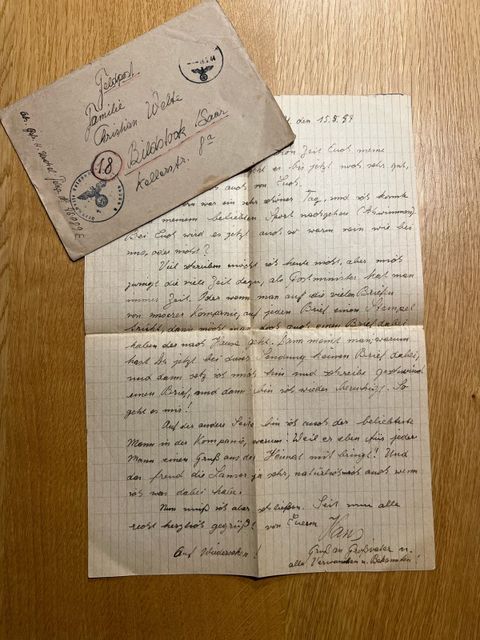 Feldpost
Familie
Christian Welte
Bildstock/Saar
Kellerstr. 8a
18
den 15.5.44
Zeit Euch meine
bis jetzt noch sehr gut,
auch von Euch.
war ein sehr schöner Tag, und ich konnte
meinem beliebten Sport nachgehen (Schwimmen)
Bei Euch wird es jetzt auch so warm sein wie bei
uns, oder nicht?
Viel schreiben möcht ich heute nicht, aber mich
zwingt die viele Zeit dazu, als Postminister hat man
immer Zeit. Oder wenn man auf die vielen Briefen
von unserer Kompanie, auf jeden Brief einen Stempel
drückt, dann möcht man doch auch einen Brief dabei
haben der nach Hause geht. Dann meint man, warum
hast Du jetzt bei dieser Sendung keinen Brief dabei,
und dann setz ich mich hin und schreibe geschwind
einen Brief, und dann bin ich wieder beruhigt. So
geht es mir!
Auf der andere Seite bin ich auch der beliebteste
Mann in der Kompanie, warum? Weil er eben für jeder
Mann einen Gruß aus der Heimat mit bringt! Und
das freud die Lanser ja sehr, natürlich mich auch wenn
ich was dabei habe.
Nun muß ich aber schließen. Seit nun alle
recht herzlich gegrüßt von Euerm
Hans
Auf Wiedersehen!
Gruß an Großvater u.
alle Verwanden u. Bekannten!